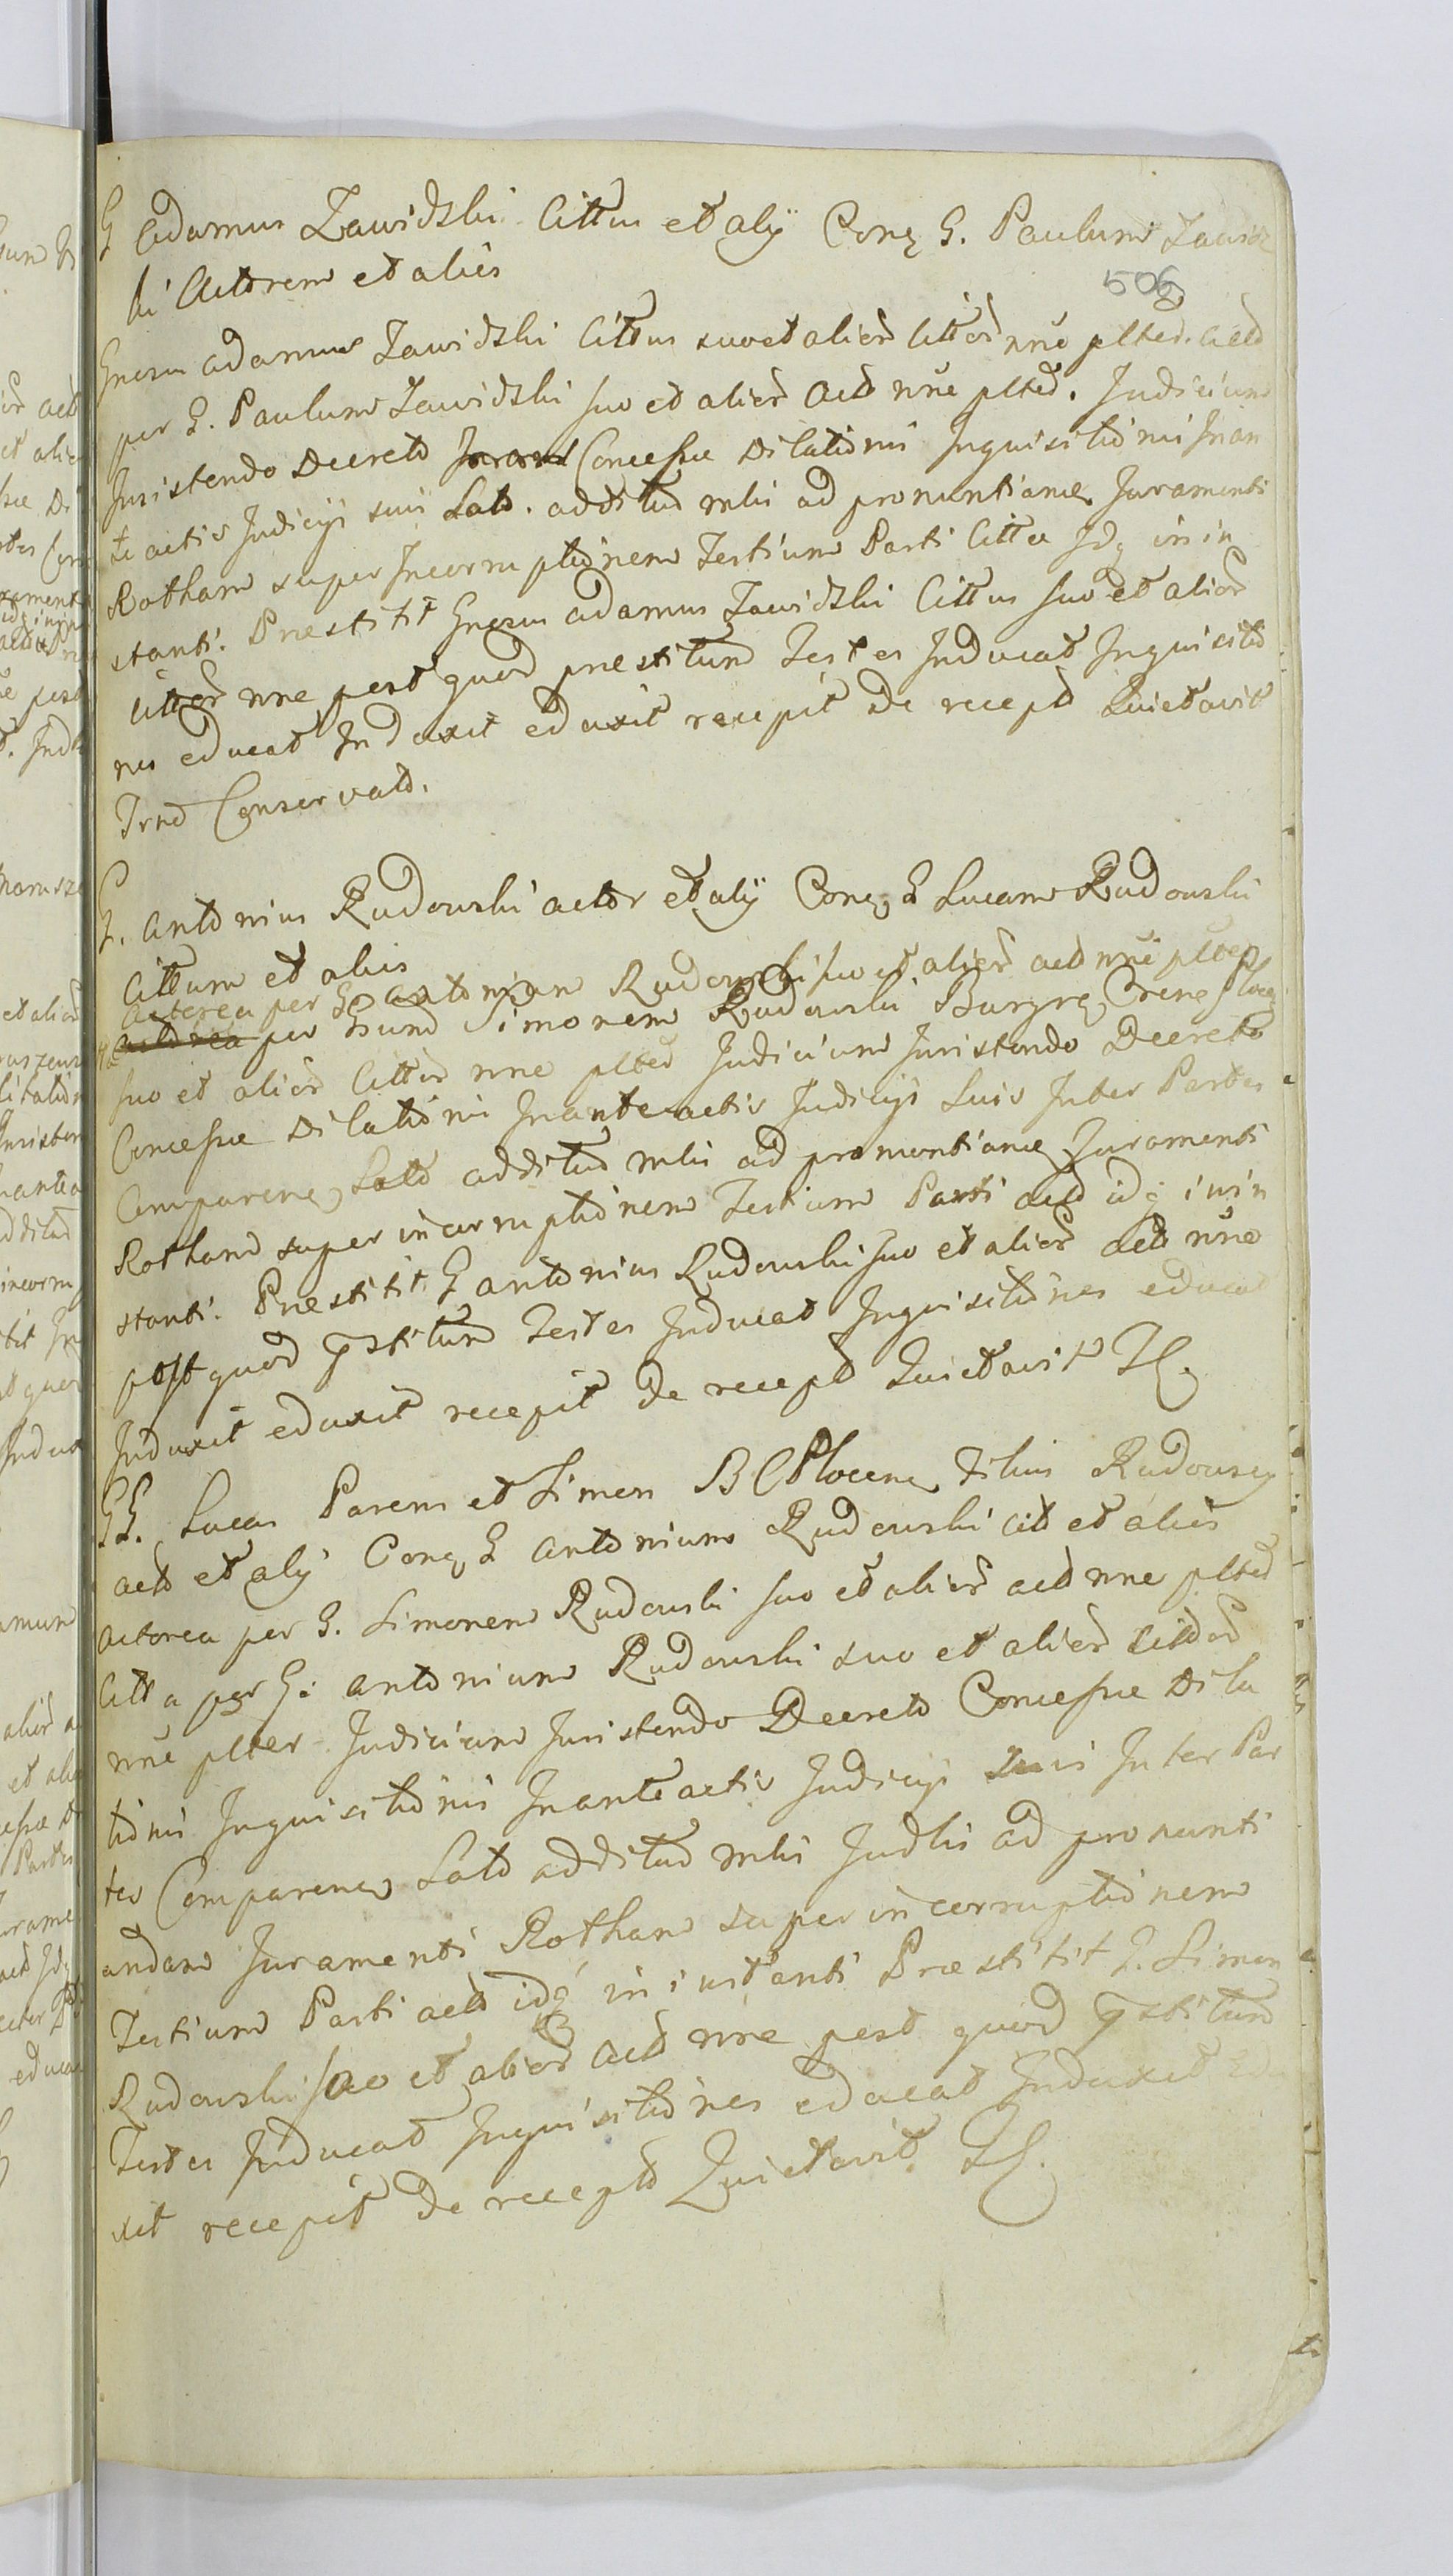 G Adamus Zawidzki Cittus et alij Conq G. Paulum Zawidz
ki Actorem et alios
506
Gnosus Adamus Zawidzki Cittus suo et alior Cittor nne plter. Acto
per G. Paulum Zawidzki suo et alior Act nne plter. Judicium
Insistendo Decreto Concessae Dilationis Inquisitionis Inan
te actis Judicij sui Lato. additus mlis ad pronuntianq Juramenti
Rotham super Incorruptionem Testium Parti Citta Idq inin
stanti. Praestitit Gnosus Adamus Zawidzki Cittus suo et alior
Cittor nne post quod praestitum Testes Inducat Inquisitio
nes educat Induxit eduxit recepit de recepto Quietavit
Trno Conservato.
G. Antonius Rudowski actor et alij Conq G Lucam Rudowski
Cittum et alios
Actorea per G Antonium Rudowski suo et alior act nne plter
per Gnum Simonem Rudowski Burgrq Crens Plocq
suo et alior Cittor nne plter Judicium Insistendo Decreto
Concessae Dilationis Inanteactis Judicij Suis Inter Partes
Comparenq Lato additus mlis ad pronuntianq Juramenti
Rotham super incorruptionem Testium Parti act idq inin
stanti. Praestitit G Antonius Rudowski suo et alior act nne
post quod pstitum Testes Inducat Inquisitiones educat
Induxit eduxit recepit de recepto Quietavit TC.
GG. Lucas Parens et Simon BC Plocens Filius Rudowscy
act et alij Conq G Antonium Rudowski cit et alios
Actorea per G. Simonem Rudowski suo et alior act nne plter
Citta per G. Antonium Rudowski suo et alior Cittor
nne plter Judicium Insistendo Decreto Concessae Dila
tionis Inquisitionis Inanteactis Judicij Suis Inter Par
tes Comparenq Lato additus mlis Judlis ad pronunti
andam Juramenti Rotham super incorruptionem
Testium Parti act idq in instanti Praestitit G. Simon
Rudowski suo et alior act nne post quod pstitum
Testes Inducat Inquisitiones educat Induxit edu
xit recepit de recepto Quietavit TC.